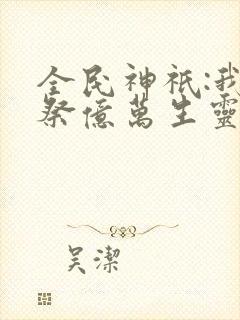 全民神祇:我
祭億萬生靈
吴潔